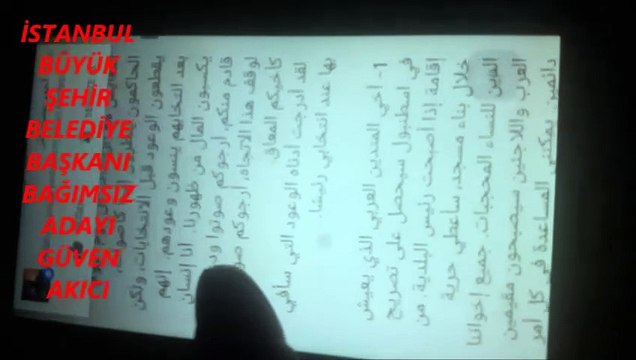 İSTANBUL
BÜYÜK
ŞEHİR
BELEDİYE
BAŞKANI
BAĞIMSIZ
ADAYI
GÜVEN
AKICI
الحاكمون
يعطون الوعود قبل الانتخابات، ولكن
بعد انتخابهم ينسون وعودهم. إنهم
يكسبون المال من ظهورنا. أنا إنسان
قادم منكم، أرجوكم صوتوا
لوقف هذا الاتجاه، أرجوكم
كأخيكم المعاق
لقد أدرجت أدناه الوعود التي سأفي
بها عند انتخابي رئيسًا
1- أخي المتدين العربي الذي يعيش
في اسطنبول سيحصل على تصريح
إقامة إذا أصبحت رئيس البلدية. من
خلال بناء مسجد، ساعطي حرية
اللبس للنساء المحجبات جميع إخواننا
العرب واللاجئين سيصبحون مقيمين
دائمين يمكنني المساعدة في كل أمر